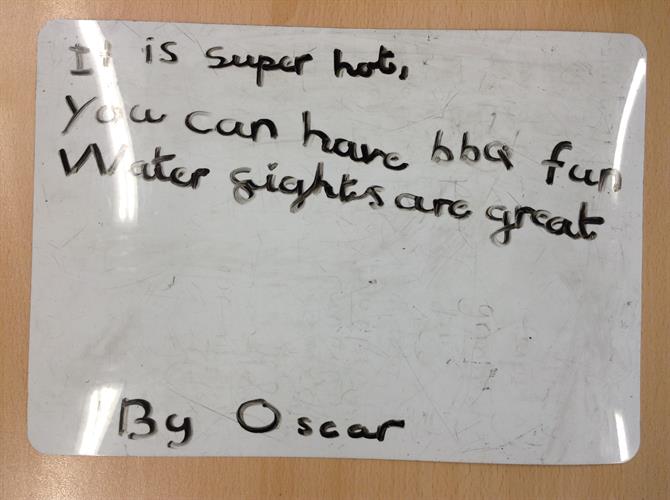 It is super hot,
You can have bbq fun
Water fights are great
By Oscar